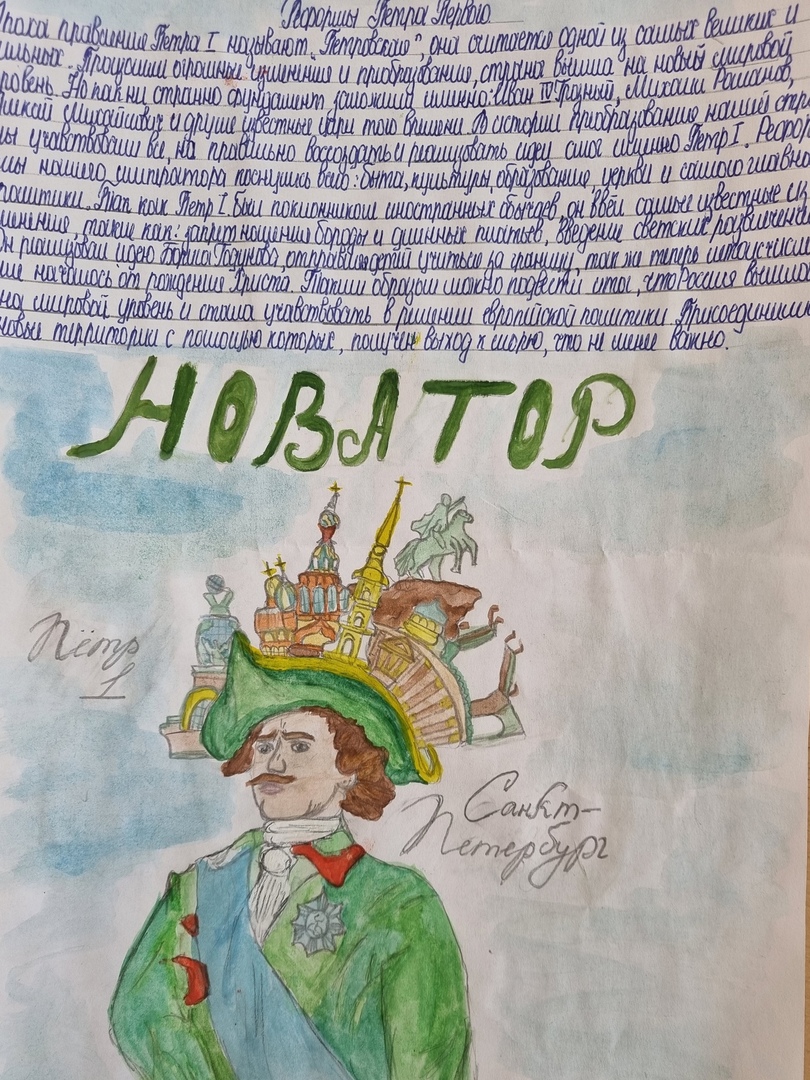 Реформы Петра Первого
Эпоха правления Петра I называют "Петровской", она считается одной из самых великих и
сильных. Прошли огромные изменения и преобразования, страна вышла на новый мировой
уровень. Но как ни странно фундамент заложили именно: Иван IV Грозный, Михаил Романов,
Алексей Михайлович и другие известные цари того времени. В истории преобразование нашей стра
ны учавствовали все, но правильно воссоздать и реализовать идею смог именно Петр I. Рефор
мы нашего императора коснулись всего: быта, культуры, образование, церкви и самого главно
политики. Так как Петр I был поклонником иностранных обычаев, он ввёл самые известные из
менение, такие как: запрет ношения бороды и длинных платьев, введение светских развлечени
Он реализовал идею Бориса Годунова, отправил детей учиться за границу, так же теперь летоисчисле
ние началось от рождение Христа. Таким образом можно подвести итог, что Россия вышла
на мировой уровень и стала учавствовать в решении европейской политики. Присоединили
новые территории с помощью которых, получен выход к морю, что не менее важно.
НОВАТОР
Пётр
1
Санкт-
Петербург